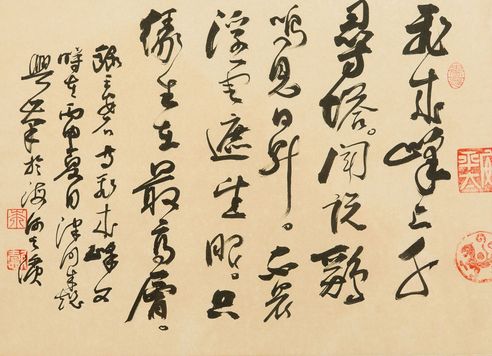 飛來峰上千
尋塔。聞說鷄
鳴見日升。不畏
浮雲遮望眼。只
緣身在最高層。
錄王安石 飛來峰
時在丙申夏日津門
於海河之濱